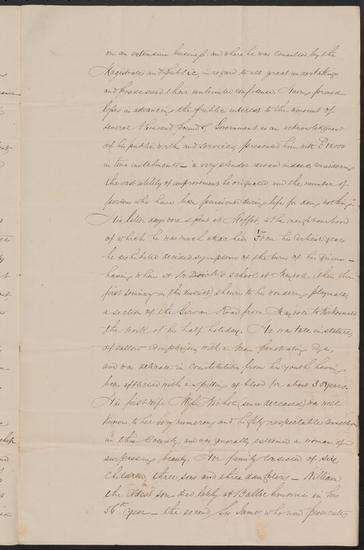 on an extensive business and where he was consulted by the
Magistrates and public, in regard to all great undertakings
and possessed their unlimited confidence. Having found
loss in advancing the public interest to the amount of
several thousand pounds, Government as an acknowledgment
of his public worth and services presented him with £1200
in two instalments – a very slender reward indeed considering
the vast utility of improvement he originated and the number of
persons who have been pensioned during life for doing nothing.
His latter days were spent at Moffat, to the neighbourhood
of which he was much attached. From his earliest years
he exhibited decided symptoms of the turn of his genius –
having when at Mr Doick's school at Maybole (then the
first seminary in the district) shown to his wondering playmates
a section of the Girvan Road from Maybole to Kirkoswald
the work of his half holiday. He was tall in stature,
of sallow complexion with a keen penetrating Eye,
and was delicate in constitution from his youth, having
been afflicted with a spitting of blood for about 30 years.
His first wife Miss Nichol, (now deceased) was well
known to her very numerous and highly respectable connections
in this County and was generally esteemed a woman of
surpassing beauty. Her family consisted of six
Children, three sons and three daughters – William,
the Eldest son died lately at Ballochmorrie in his
56th year – the second, Sir James, who was formerly